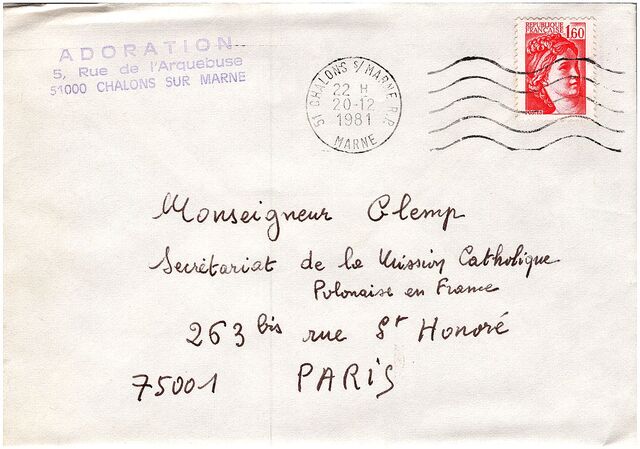 ADORATION
5, Rue de l'Arquebuse
51000 CHALONS SUR MARNE
51 CHALONS S/MARNE R.P.
22 H
20-12
1981
MARNE
REPUBLIQUE
FRANCAISE
1,60
Monseigneur Glemp
Secrétariat de la Mission Catholique
Polonaise en France
263 bis rue St Honoré
75001 PARIS